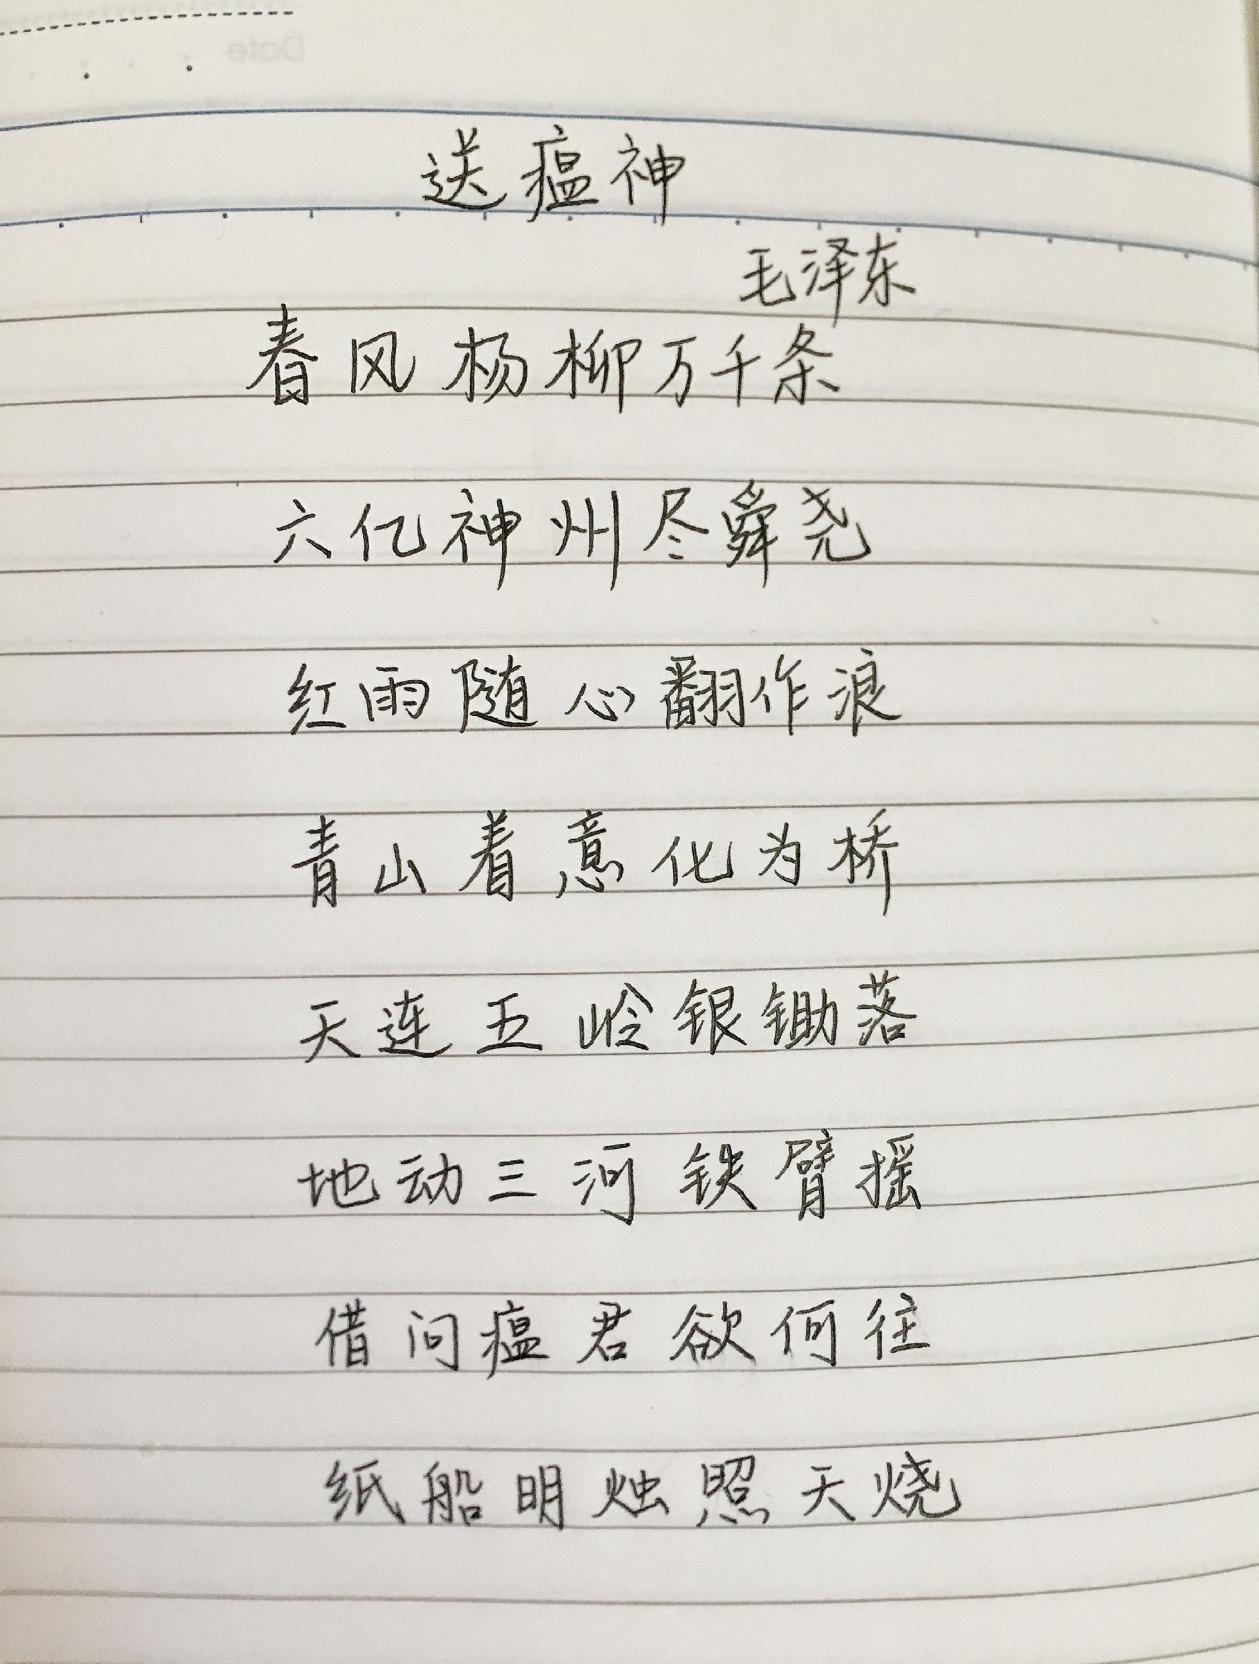 Date
送瘟神
毛泽东
春风杨柳万千条
六亿神州尽舜尧
红雨随心翻作浪
青山着意化为桥
天连五岭银锄落
地动三河铁臂摇
借问瘟君欲何往
纸船明烛照天烧